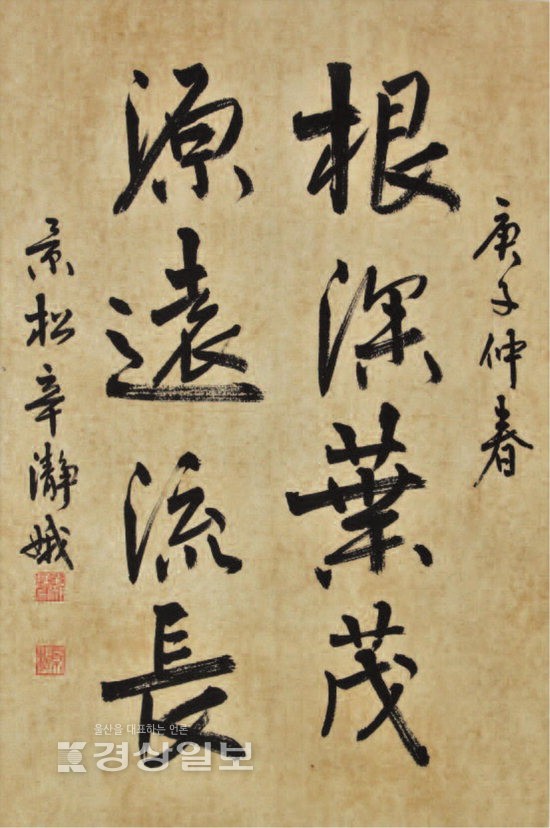 庚子仲春
根深葉茂
源遠流長
景松辛瀞娥
울산을 대표하는 언론
경상일보